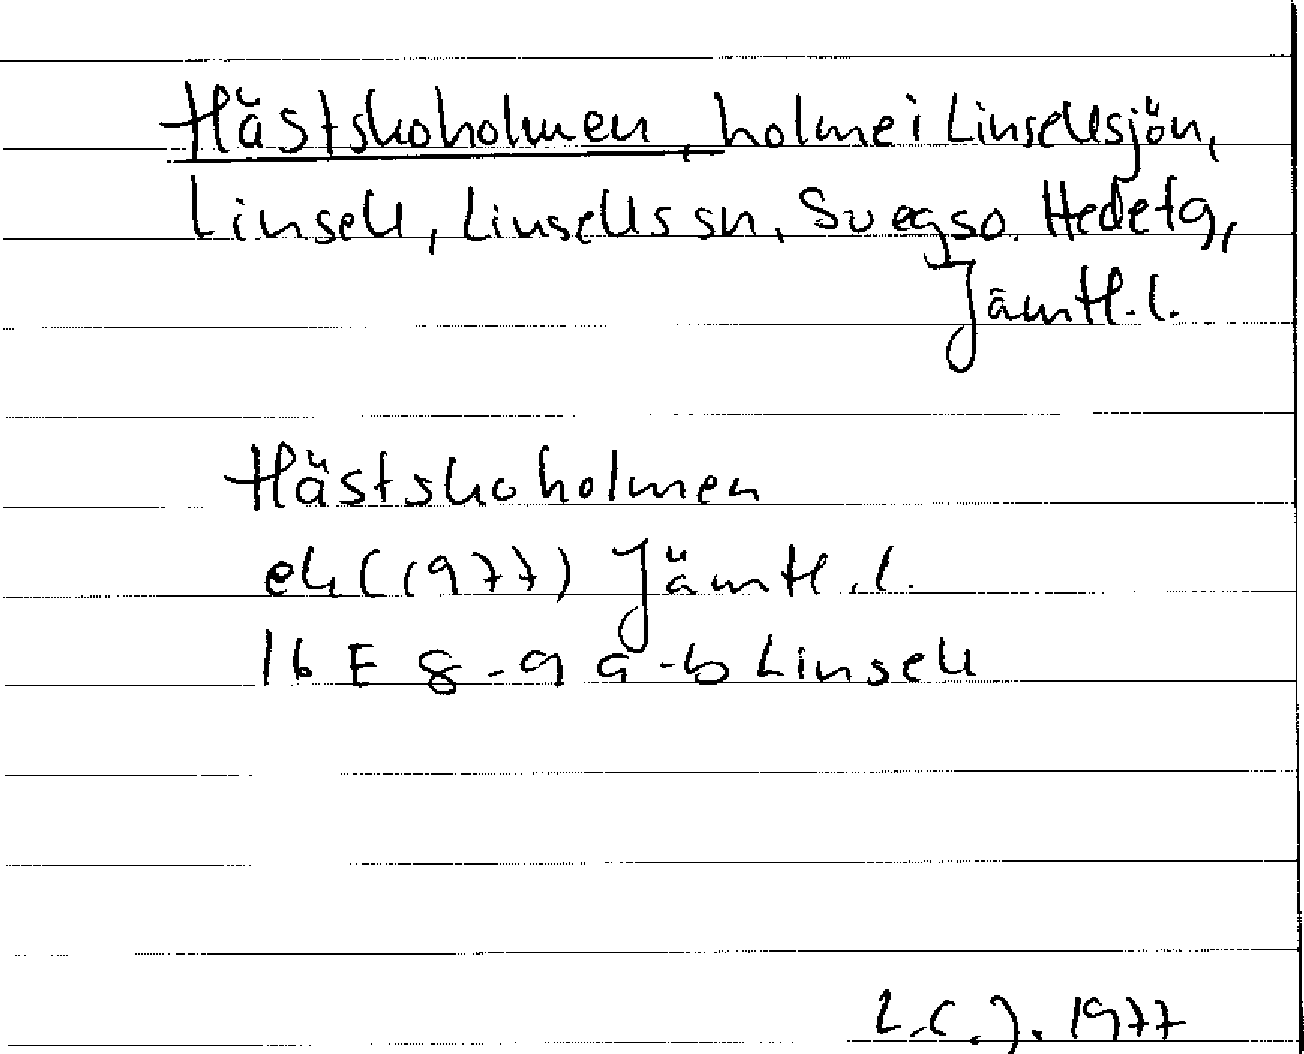 Hästskoholmen, holme i Linsellsjön,
Linsell, Linsells sn, Svegs so. Hede tg,
Jämtl. l.
Hästskoholmen
ek (1977) Jämtl. l.
16 E 8-9 a-b Linsell
L.C.J. 1977